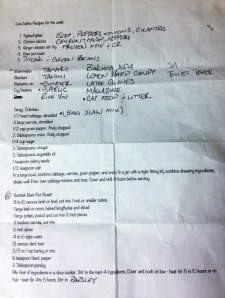 Low Iodine Recipes for the week
1. Fajitas/Fajitas BEEF, PEPPERS + ONIONS, CILANTRO
2. Chicken kabobs CHICKEN, MUSH, PEPPERS
3. Ginger chicken stir fry FROZEN MIX + CK
4. Pot roast
5. STEAK + GREEN BEANS
Watermelon TAMARI BAKING SODA
Blanket TAHINI LEMON HARD CANDY TOILET PAPER
GINGER LATEX GLOVES
GARLIC MAGAZINE
RICE VIN CAT FOOD + LITTER
Tangy Coleslaw
1/2 head cabbage, shredded (BAG SLAW MIX)
2 large carrots, shredded
1/2 cup green pepper, finely chopped
1/2 onion, finely chopped
1/4 cup sugar
3 Tablespoons vinegar
2 Tablespoons vegetable oil
1 teaspoon celery seeds
1/2 teaspoon salt
In a large bowl, combine cabbage, carrots, green pepper, and onion. In a jar with a tight fitting lid, combine dressing ingredients,
shake well. Pour over cabbage mixture and toss. Cover and chill 4 hours before serving.
Scottish Slow Pot Roast
8 to 10 carrots
1 large leek or onion, halved lengthwise and sliced
1 large potato, peeled and cut into 6 inch pieces
3 medium carrots, cut into
6 inch slices
4 to 6 cups water
12 ounces dark beer
2/3 to 1 cup barley or rice
1/4 teaspoon black pepper
2 Tablespoon parsley
Mix first 4 ingredients in a slow cooker. Stir in the next 4 ingredients. Cover and cook on low - heat for 8 to 10 hours or on
high - heat for 4 to 5 hours. Stir in PARSLEY